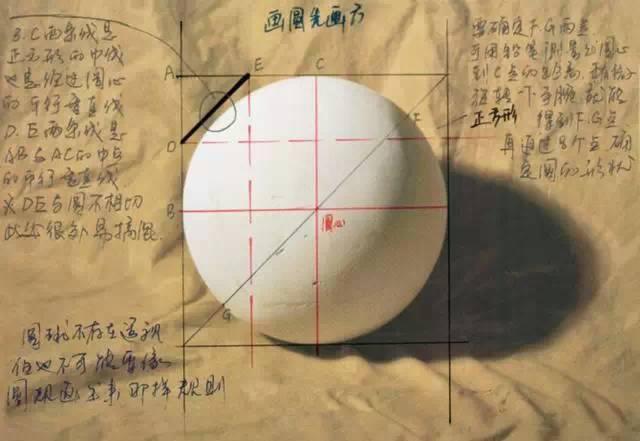 画圆先画方
B.C两条线是
正方形的中线
也是经过圆心
的平行垂直线
D.E两条线是
AB与AC的中点
的平行垂直线
※DE与圆不相切
此处很容易搞混.
要确定F.G两点
可用铅笔测量出圆心
到C点的距离,再
旋转一下手腕就能
得到F.G点
再通过8个点确
定圆的形状
正方形
A
E
C
F
D
B
圆心
G
圆球不存在透视
但也不可能要像
圆规画出来那样规则